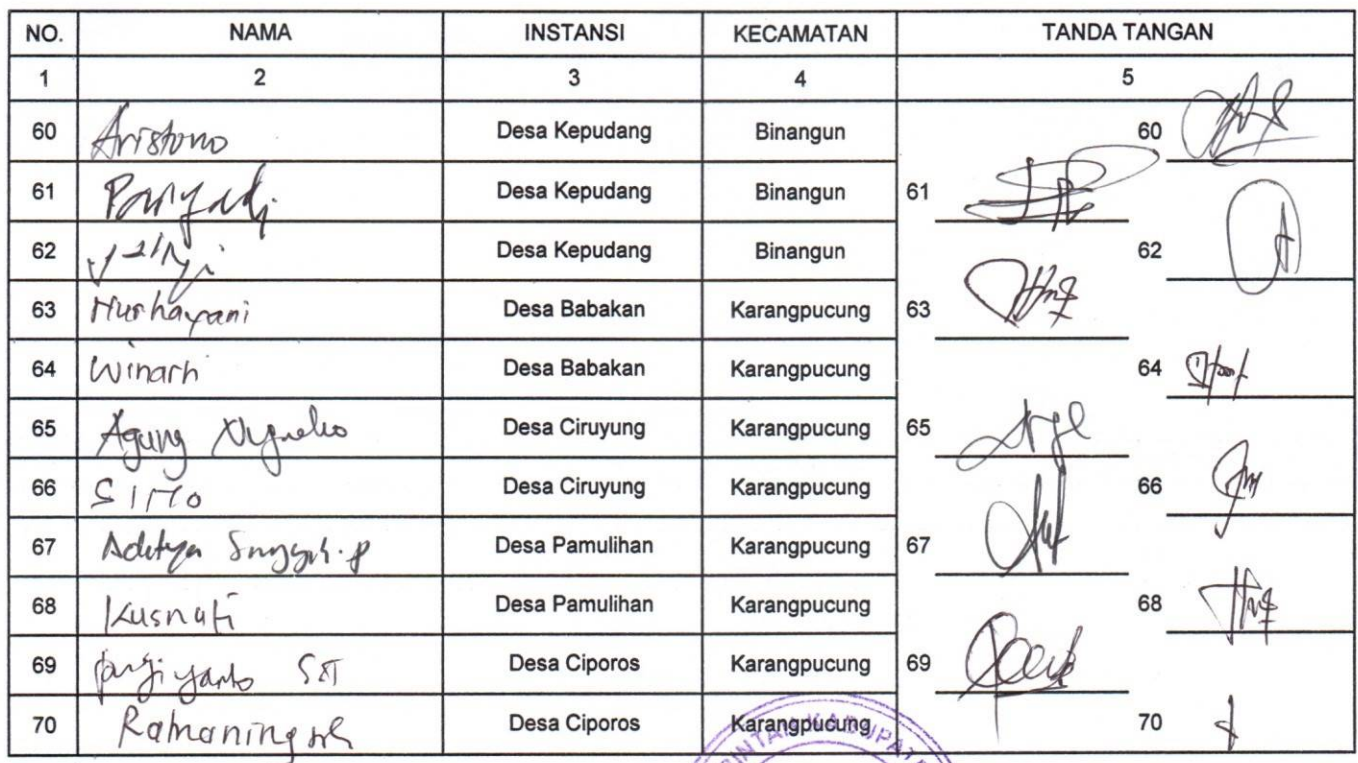 NO. NAMA INSTANSI KECAMATAN TANDA TANGAN
1 2 3 4 5
60 Aristono Desa Kepudang Binangun 60
61 Paryadi Desa Kepudang Binangun 61
62 Desa Kepudang Binangun 62
63 Nurhayani Desa Babakan Karangpucung 63
64 Winarti Desa Babakan Karangpucung 64
65 Agung Desa Ciruyung Karangpucung 65
66 Desa Ciruyung Karangpucung 66
67 Aditya Desa Pamulihan Karangpucung 67
68 Kusnati Desa Pamulihan Karangpucung 68
69 Desa Ciporos Karangpucung 69
70 Ratnaningsih Desa Ciporos Karangpucung 70